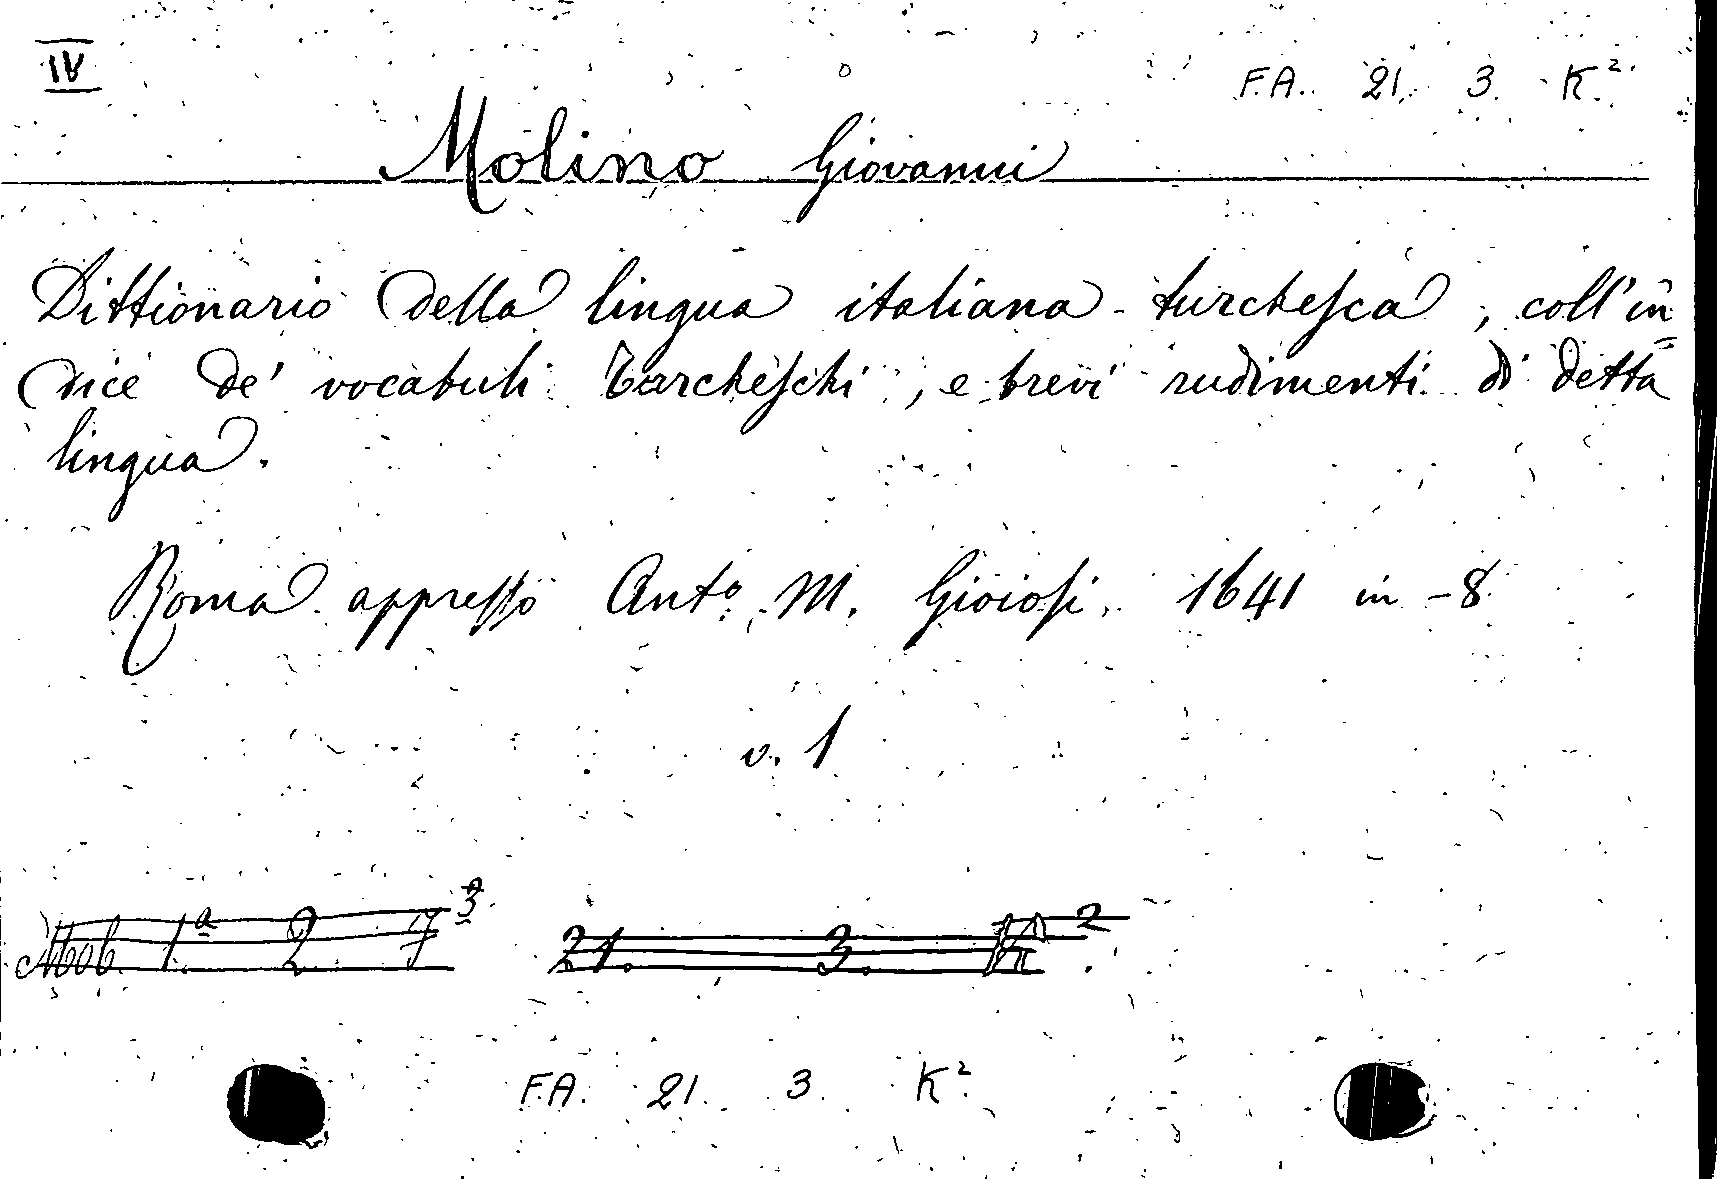 IV
F.A. 21. 3. K².
Molino Giovanni
Dittionario della lingua italiana-turchesca, coll'in=
dice de' vocabuli turcheschi, e brevi rudimenti di detta
lingua.
Roma appresso Ant.º M. Gioiosi. 1641 in-8
v. 1
Mob. 1.ª 2 7³ 21. 3. K².
F.A. 21. 3. K².